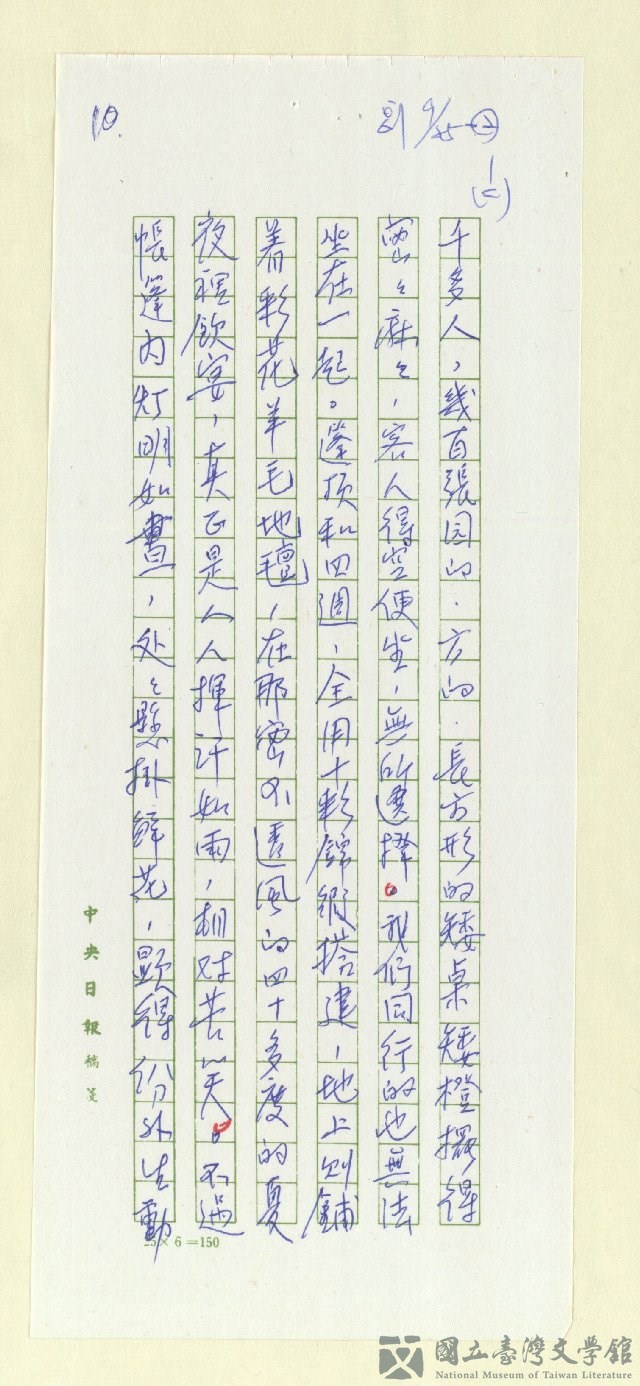 10.
刊 9/25 ㊁
1
(仁)
千多人，幾百張园的．方的．長方形的矮桌矮櫈擺得
密々麻々，客人得空便坐，無所選擇。我們同行的也無法
坐在一起。篷顶和四週，全用十彩錦緞搭建，地上则鋪
着彩花羊毛地氊，在那密不透風的四十多度的夏
夜裡飲宴，真正是人人揮汗如雨，相对苦笑。不過
帳篷内灯明如晝，处々懸掛鮮花，顯得份外生動
中央日報稿箋
25 × 6 = 150
國立臺灣文學館
National Museum of Taiwan Literature